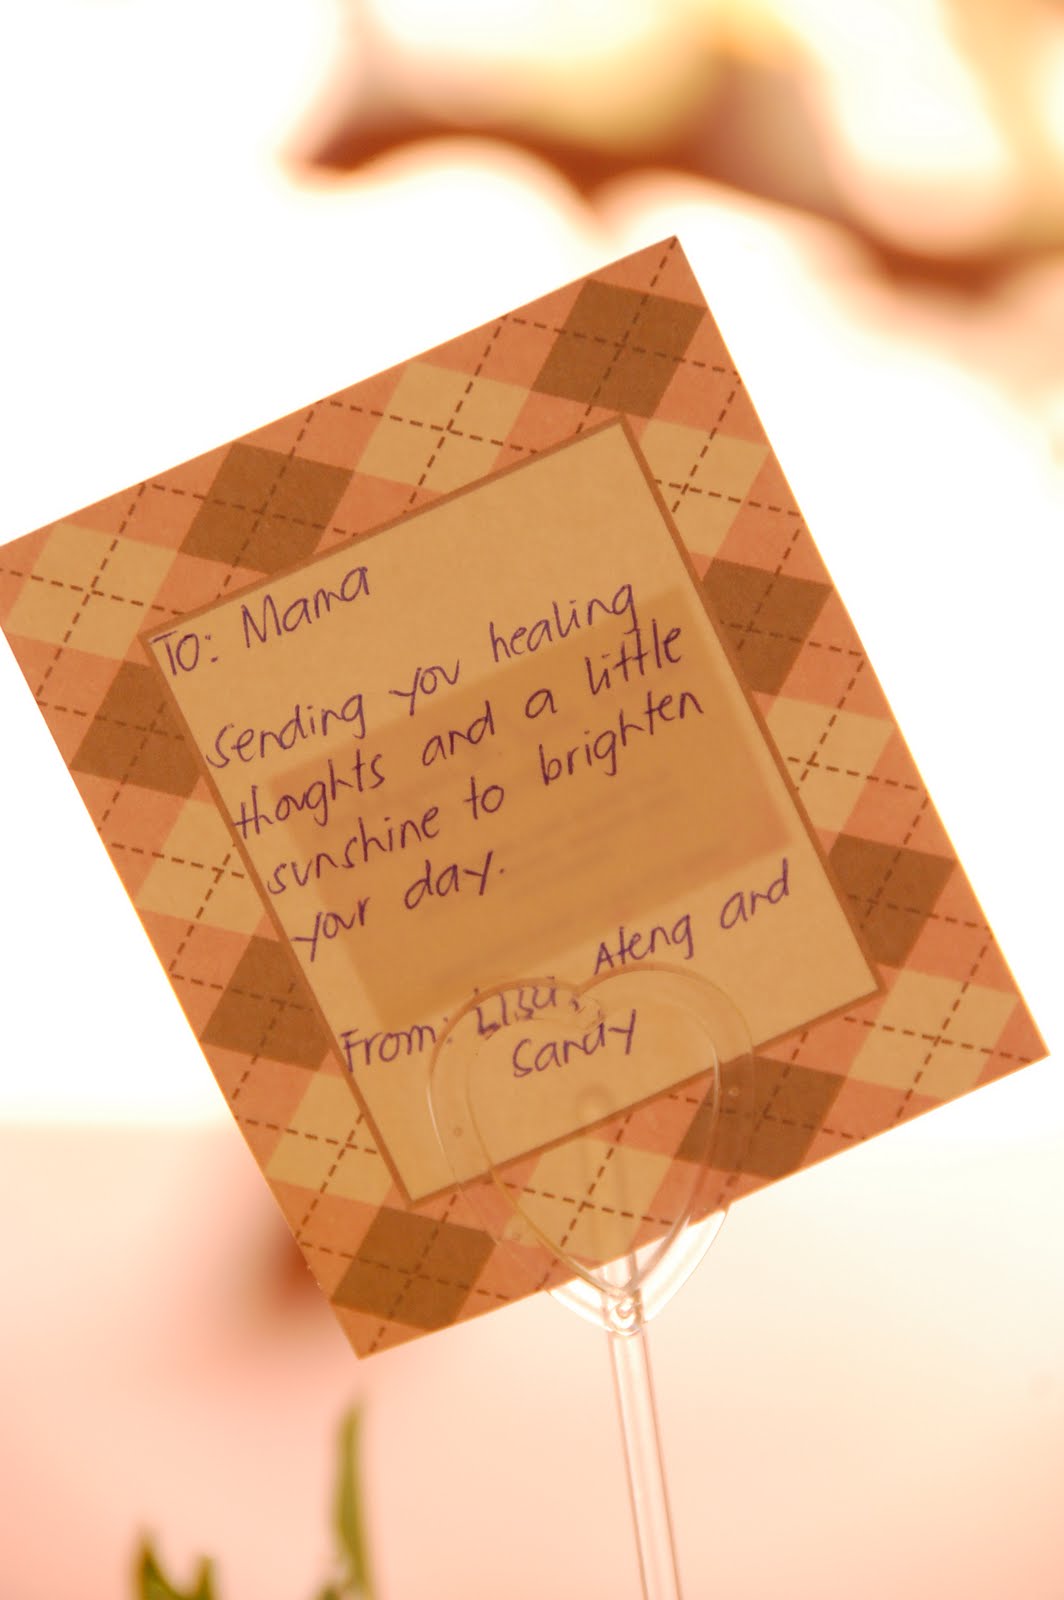 To: Mama
Sending you healing
thoughts and a little
sunshine to brighten
your day.
From: Lisa, Ateng and
Sandy